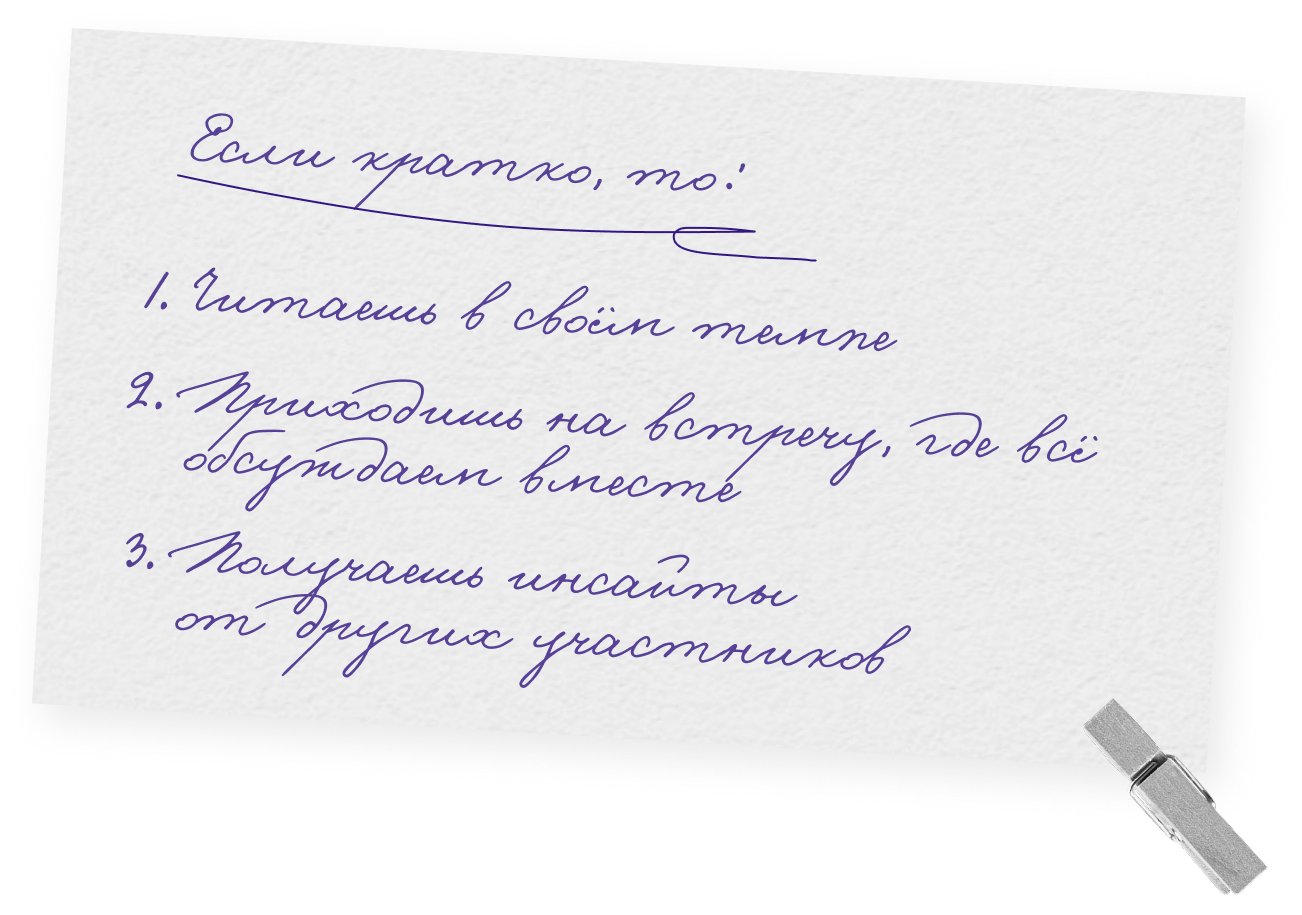 Если кратко, то:
1. Читаешь в своём темпе
2. Приходишь на встречу, где всё
обсуждаем вместе
3. Получаешь инсайты
от других участников